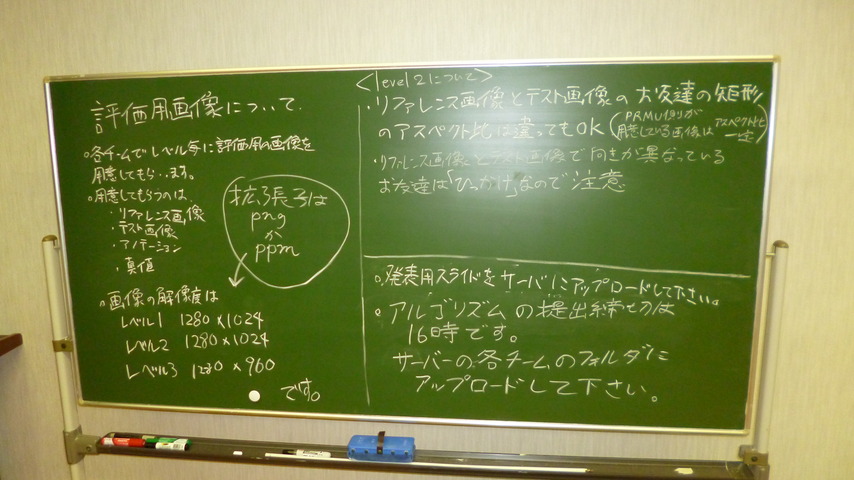 評価用画像について
。各チームでレベル毎に評価用の画像を
用意してもらいます。
。用意してもらうのは、
・リファレンス画像
・テスト画像
・アノテーション
・真値
拡張子は
png
か
ppm
。画像の解像度は
レベル1 1280×1024
レベル2 1280×1024
レベル3 1280×960
です。
<level 2について>
・リファレンス画像とテスト画像のお友達の矩形
のアスペクト比は違ってもOK (PRMU側が
用意している画像はアスペクト比
一定)
・リファレンス画像とテスト画像で向きが異なっている
お友達は「ひっかけ」なので注意
。発表用スライドをサーバにアップロードして下さい。
。アルゴリズムの提出締切は
16時です。
サーバーの各チームのフォルダに
アップロードして下さい。